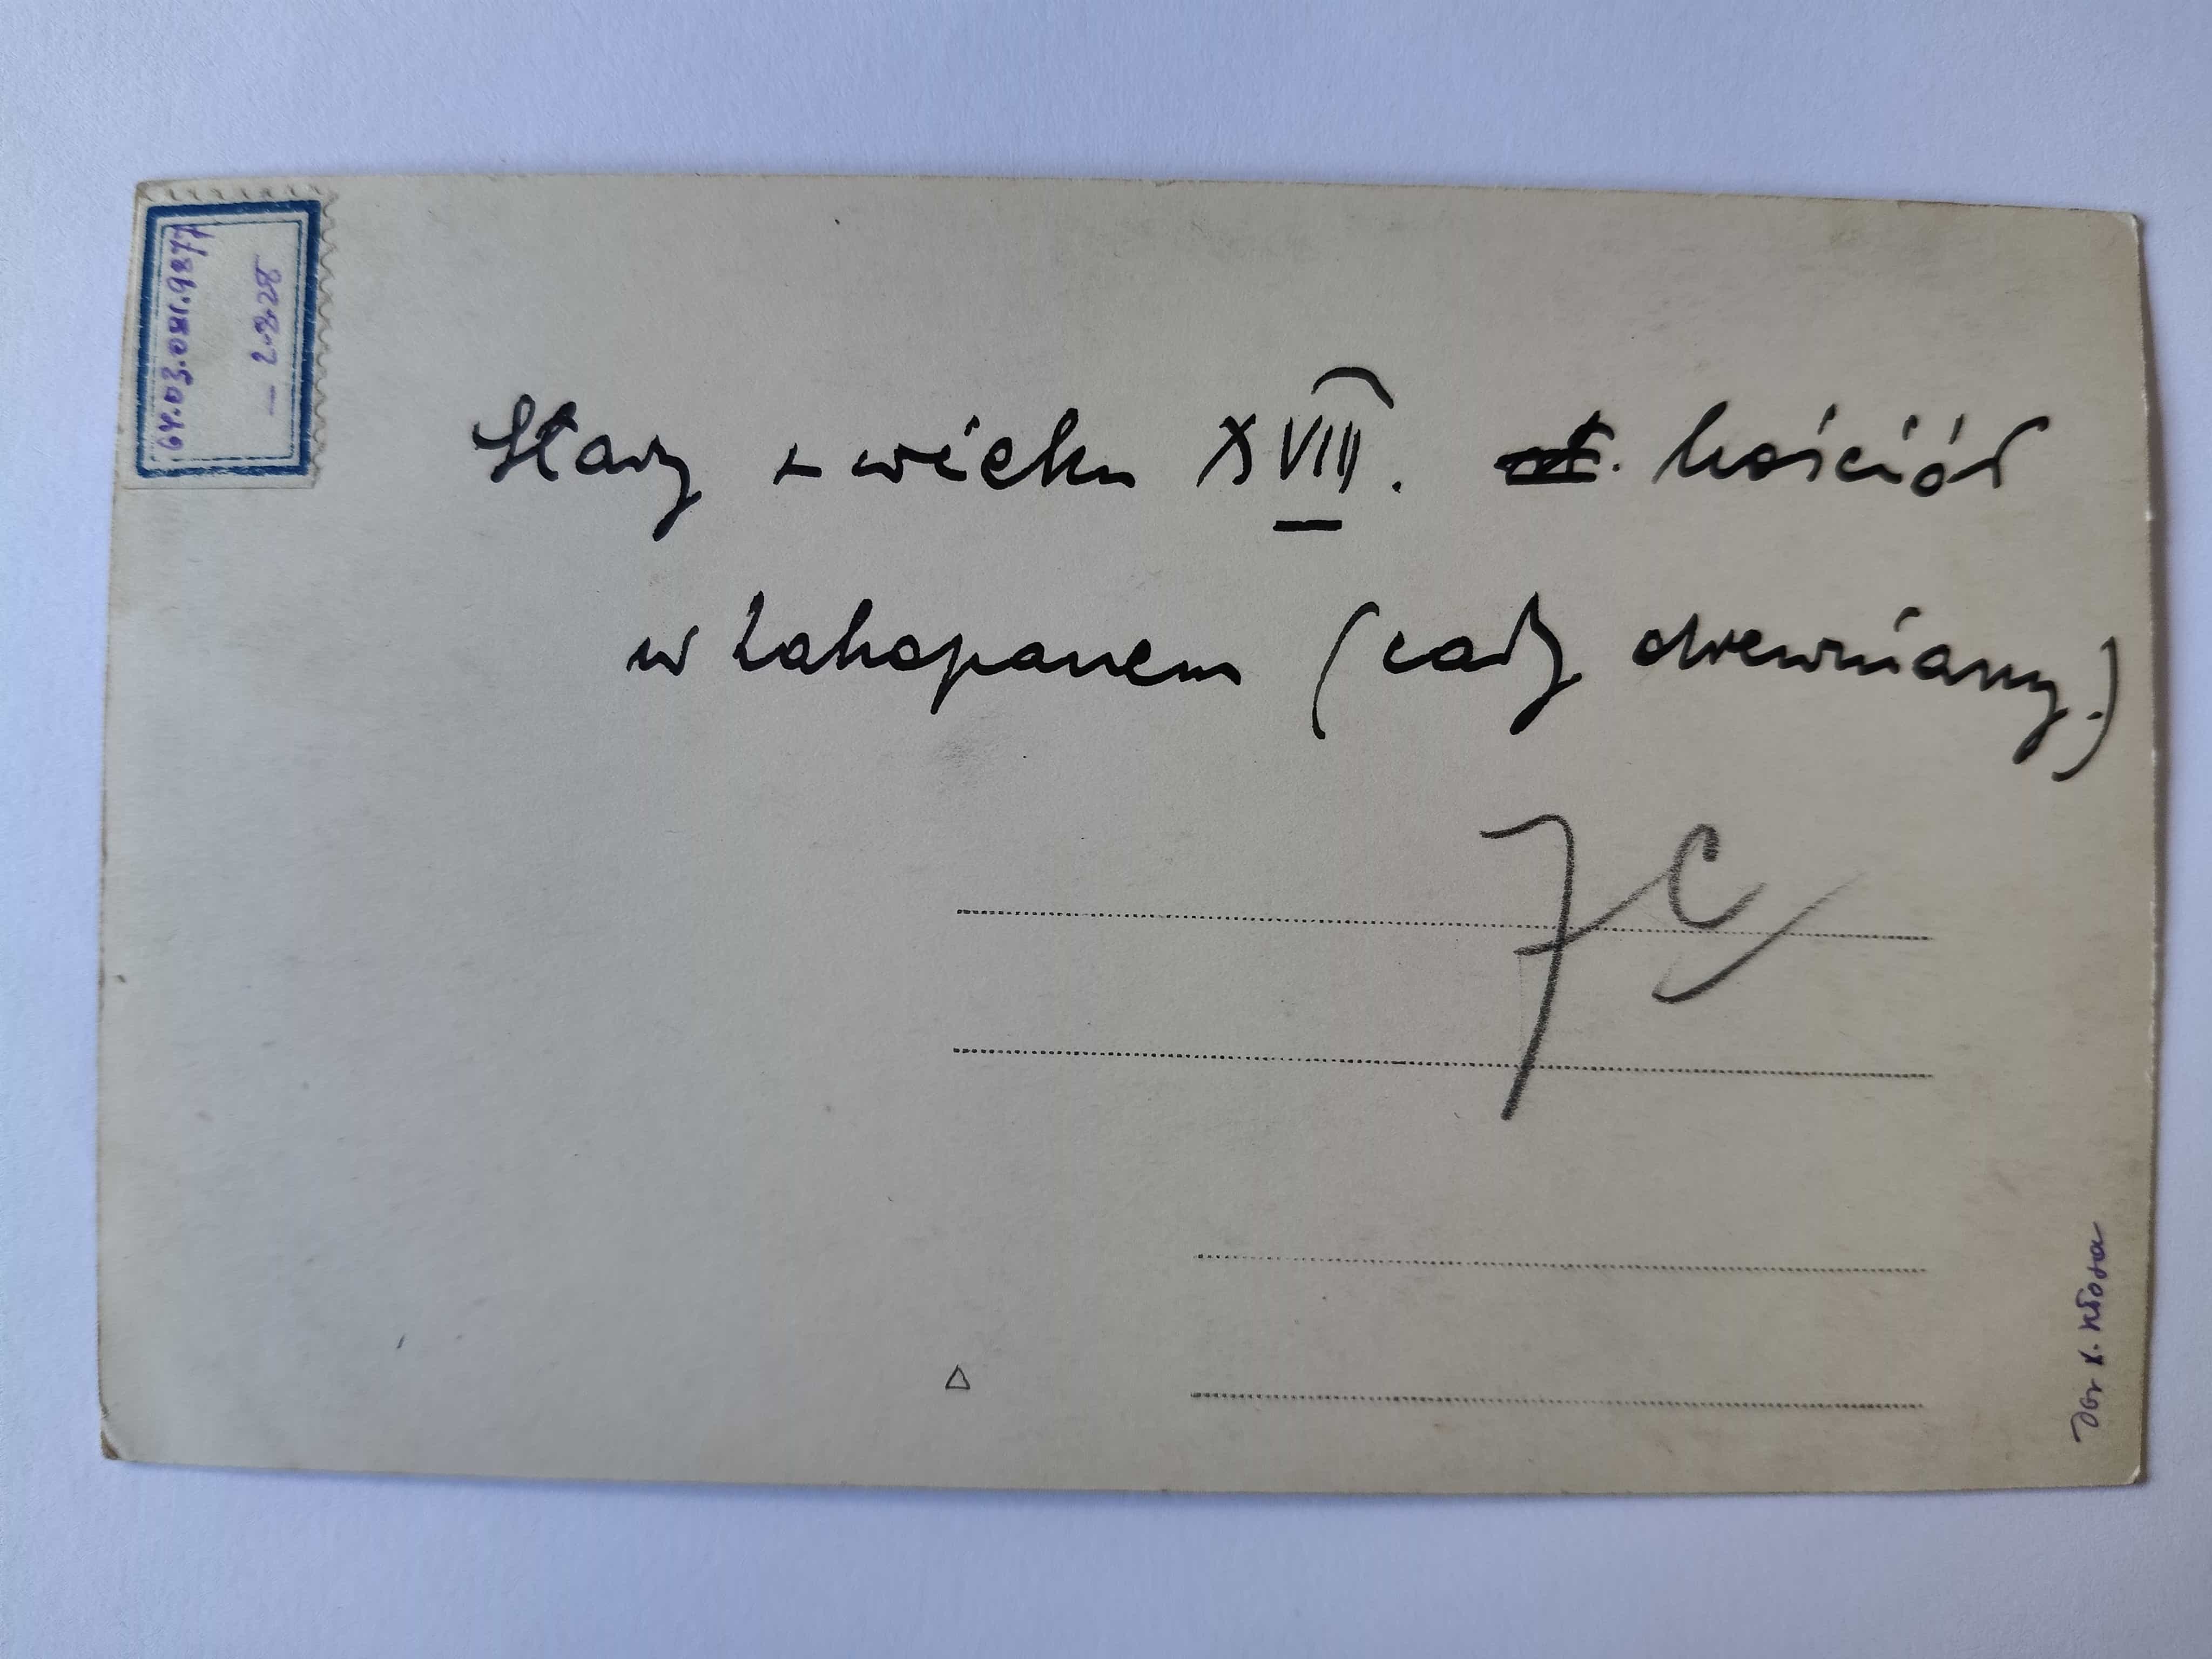 64.03.081.9877
— 2.8.28
Stary z wieku XVIII. kościół
w Zakopanem (cały drewniany.)
7c
Dar X. Kłosa